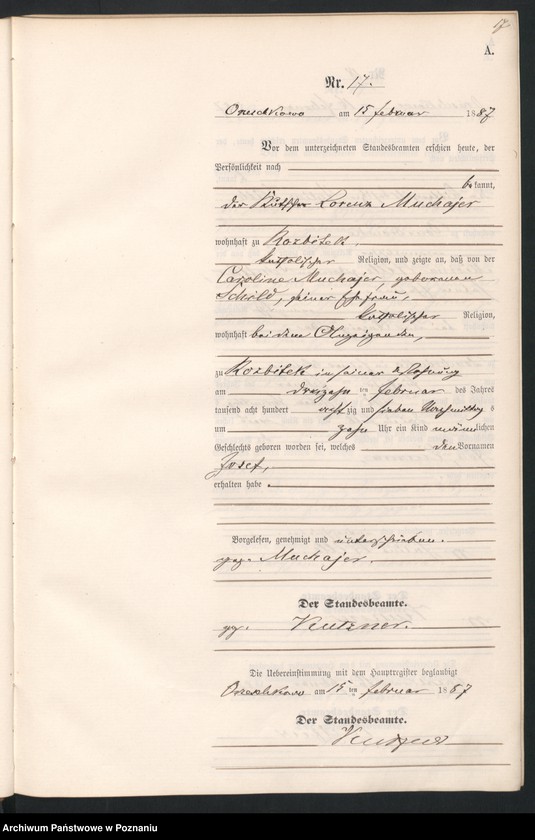 17
A.
Nr. 17.
Orzeschkowo am 15 Februar 1887
Vor dem unterzeichneten Standesbeamten erschien heute, der
Persönlichkeit nach
bekannt,
der Kutscher Lorenz Muchajer
wohnhaft zu Rozbitek,
katholischer Religion, und zeigte an, daß von der
Caroline Muchajer, geborenen
Schild, seiner Ehefrau,
katholischer Religion,
wohnhaft bei dem Anzeigenden,
zu Rozbitek in seiner Wohnung
am dreizehn ten Februar des Jahres
tausend acht hundert achtzig und sieben Nachmittags
um zehn Uhr ein Kind männlichen
Geschlechts geboren worden sei, welches den Vornamen
Josef,
erhalten habe.
Vorgelesen, genehmigt und unterschrieben.
gez. Muchajer.
Der Standesbeamte.
gez. Kutzner.
Die Uebereinstimmung mit dem Hauptregister beglaubigt
Orzeschkowo am 15 ten Februar 1887
Der Standesbeamte.
Kutzner
Archiwum Państwowe w Poznaniu